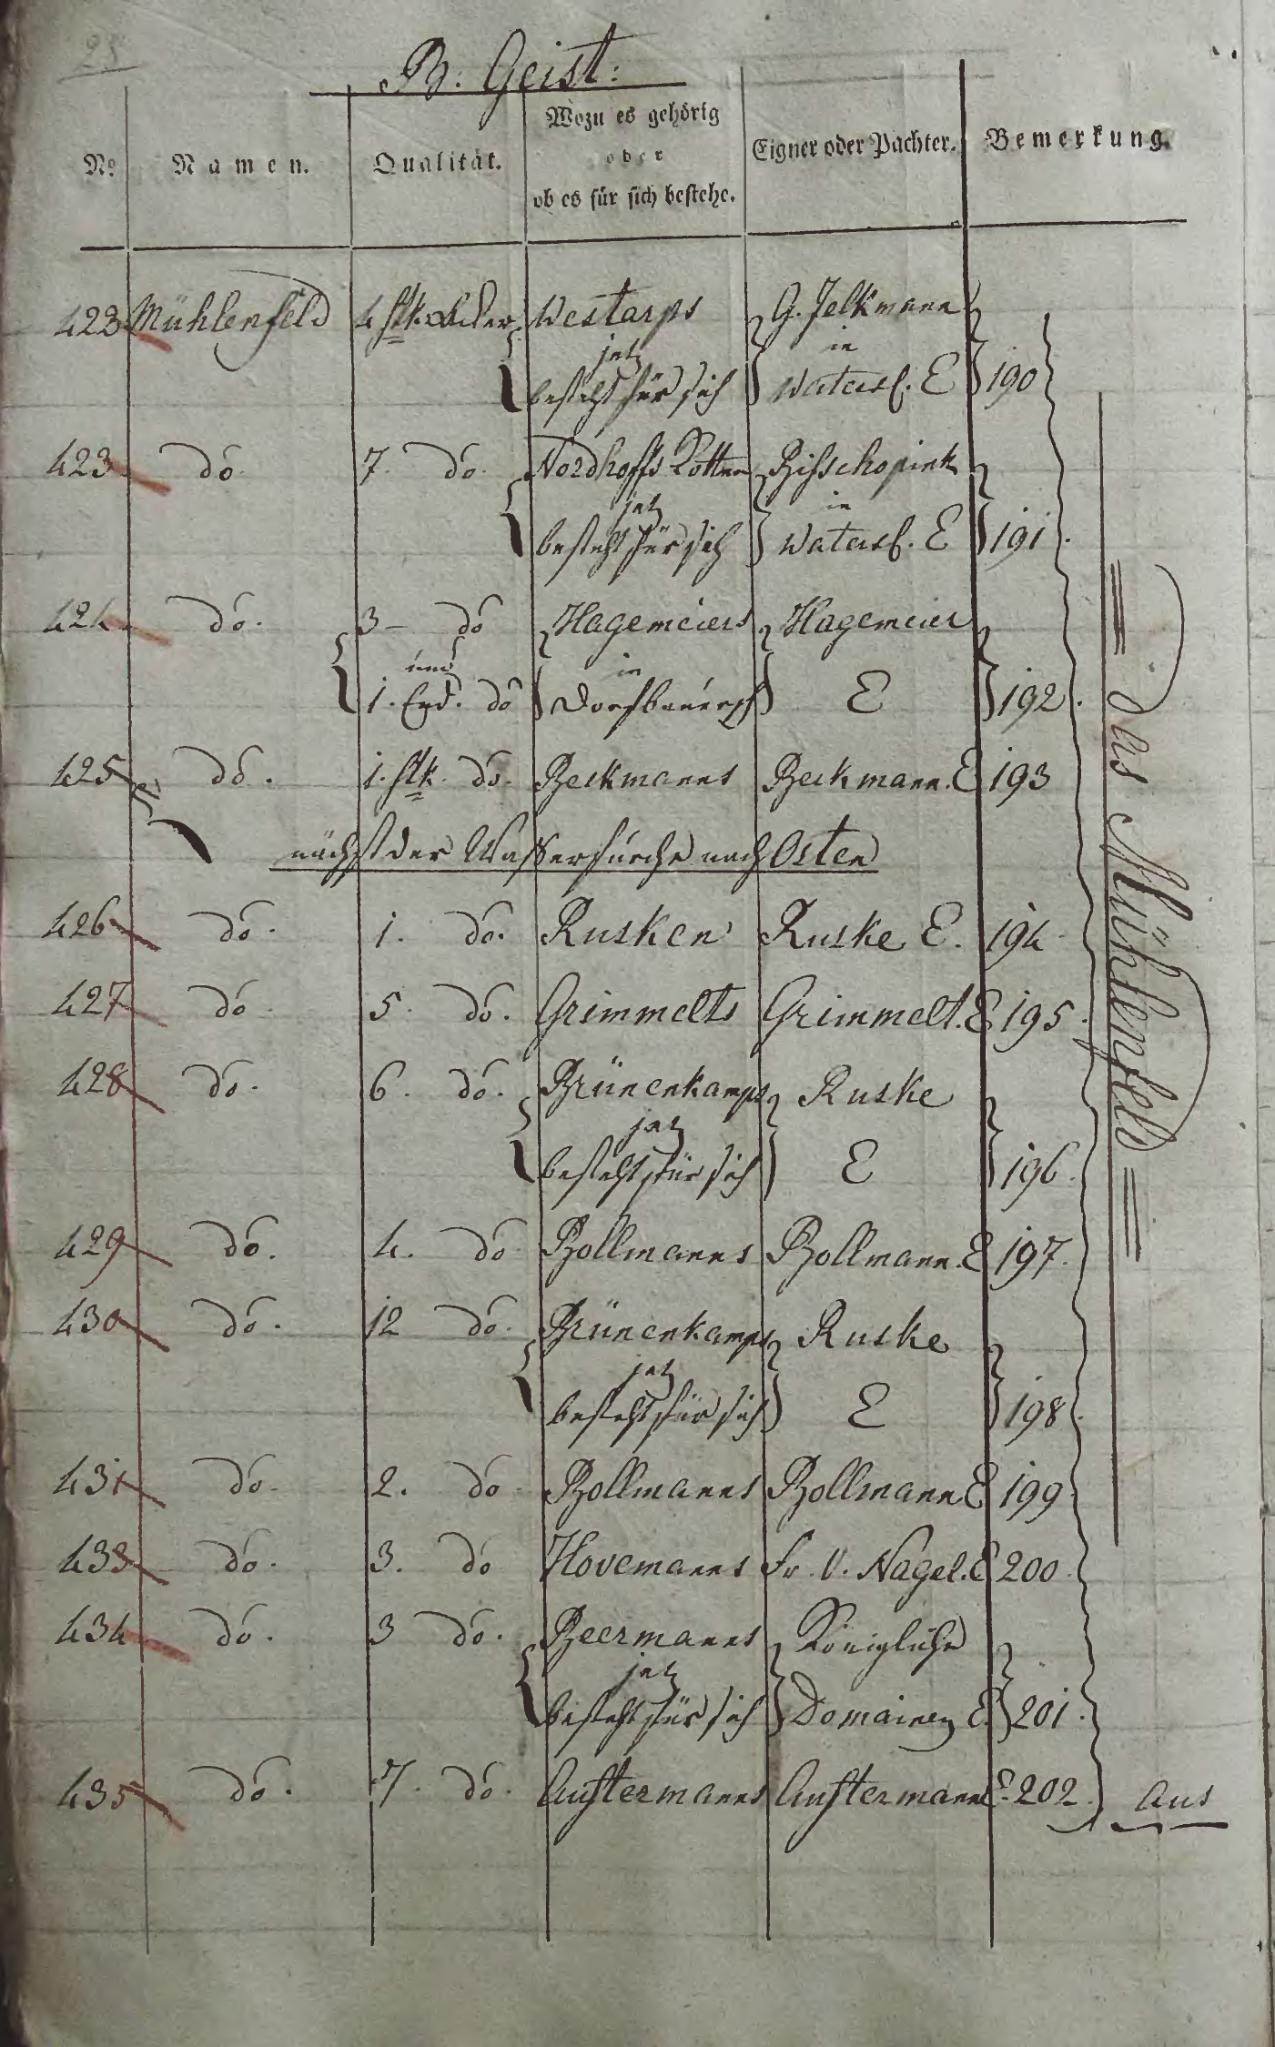 25
B. Geist:
No. Namen. Qualität. Wozu es gehörig oder ob es für sich bestehe. Eigner oder Pächter. Bemerkung.
423 Mühlenfeld 4 stk. Acker Westarps G. Jelkmann
jetz in
besteht für sich Watersl. E 190
423 do 7. do. Nordhoffs Kotten Bisschopink
jetz in
besteht für sich Watersl. E 191.
424 do. 3 – do Hagemeiers Hagemeier
und in
1. End. do Dorfbauersch E 192.
425 do. 1. stk. do. Beckmanns Beckmann. E 193
nächst der Wasserfurche nach Osten
426 do. 1. do. Rusken Ruske E. 194
427 do 5. do. Grimmelts Grimmelt. E 195.
428 do. 6. do. Brünenkamps Ruske
jetz
besteht für sich E 196.
429 do. 4. do Bollmanns Bollmann. E 197.
430 do. 12 do. Brünenkamps Ruske
jetz
besteht für sich E 198.
431 do. 2. do Bollmanns Bollmann E 199
433 do. 3. do Hovemanns Fr. V. Nagel. E 200.
434 do. 3 do. Beermanns Königliche
jetz
besteht für sich Domainen E. 201.
435 do. 7. do. Austermanns Austermann E. 202.
aus
das Mühlenfeld